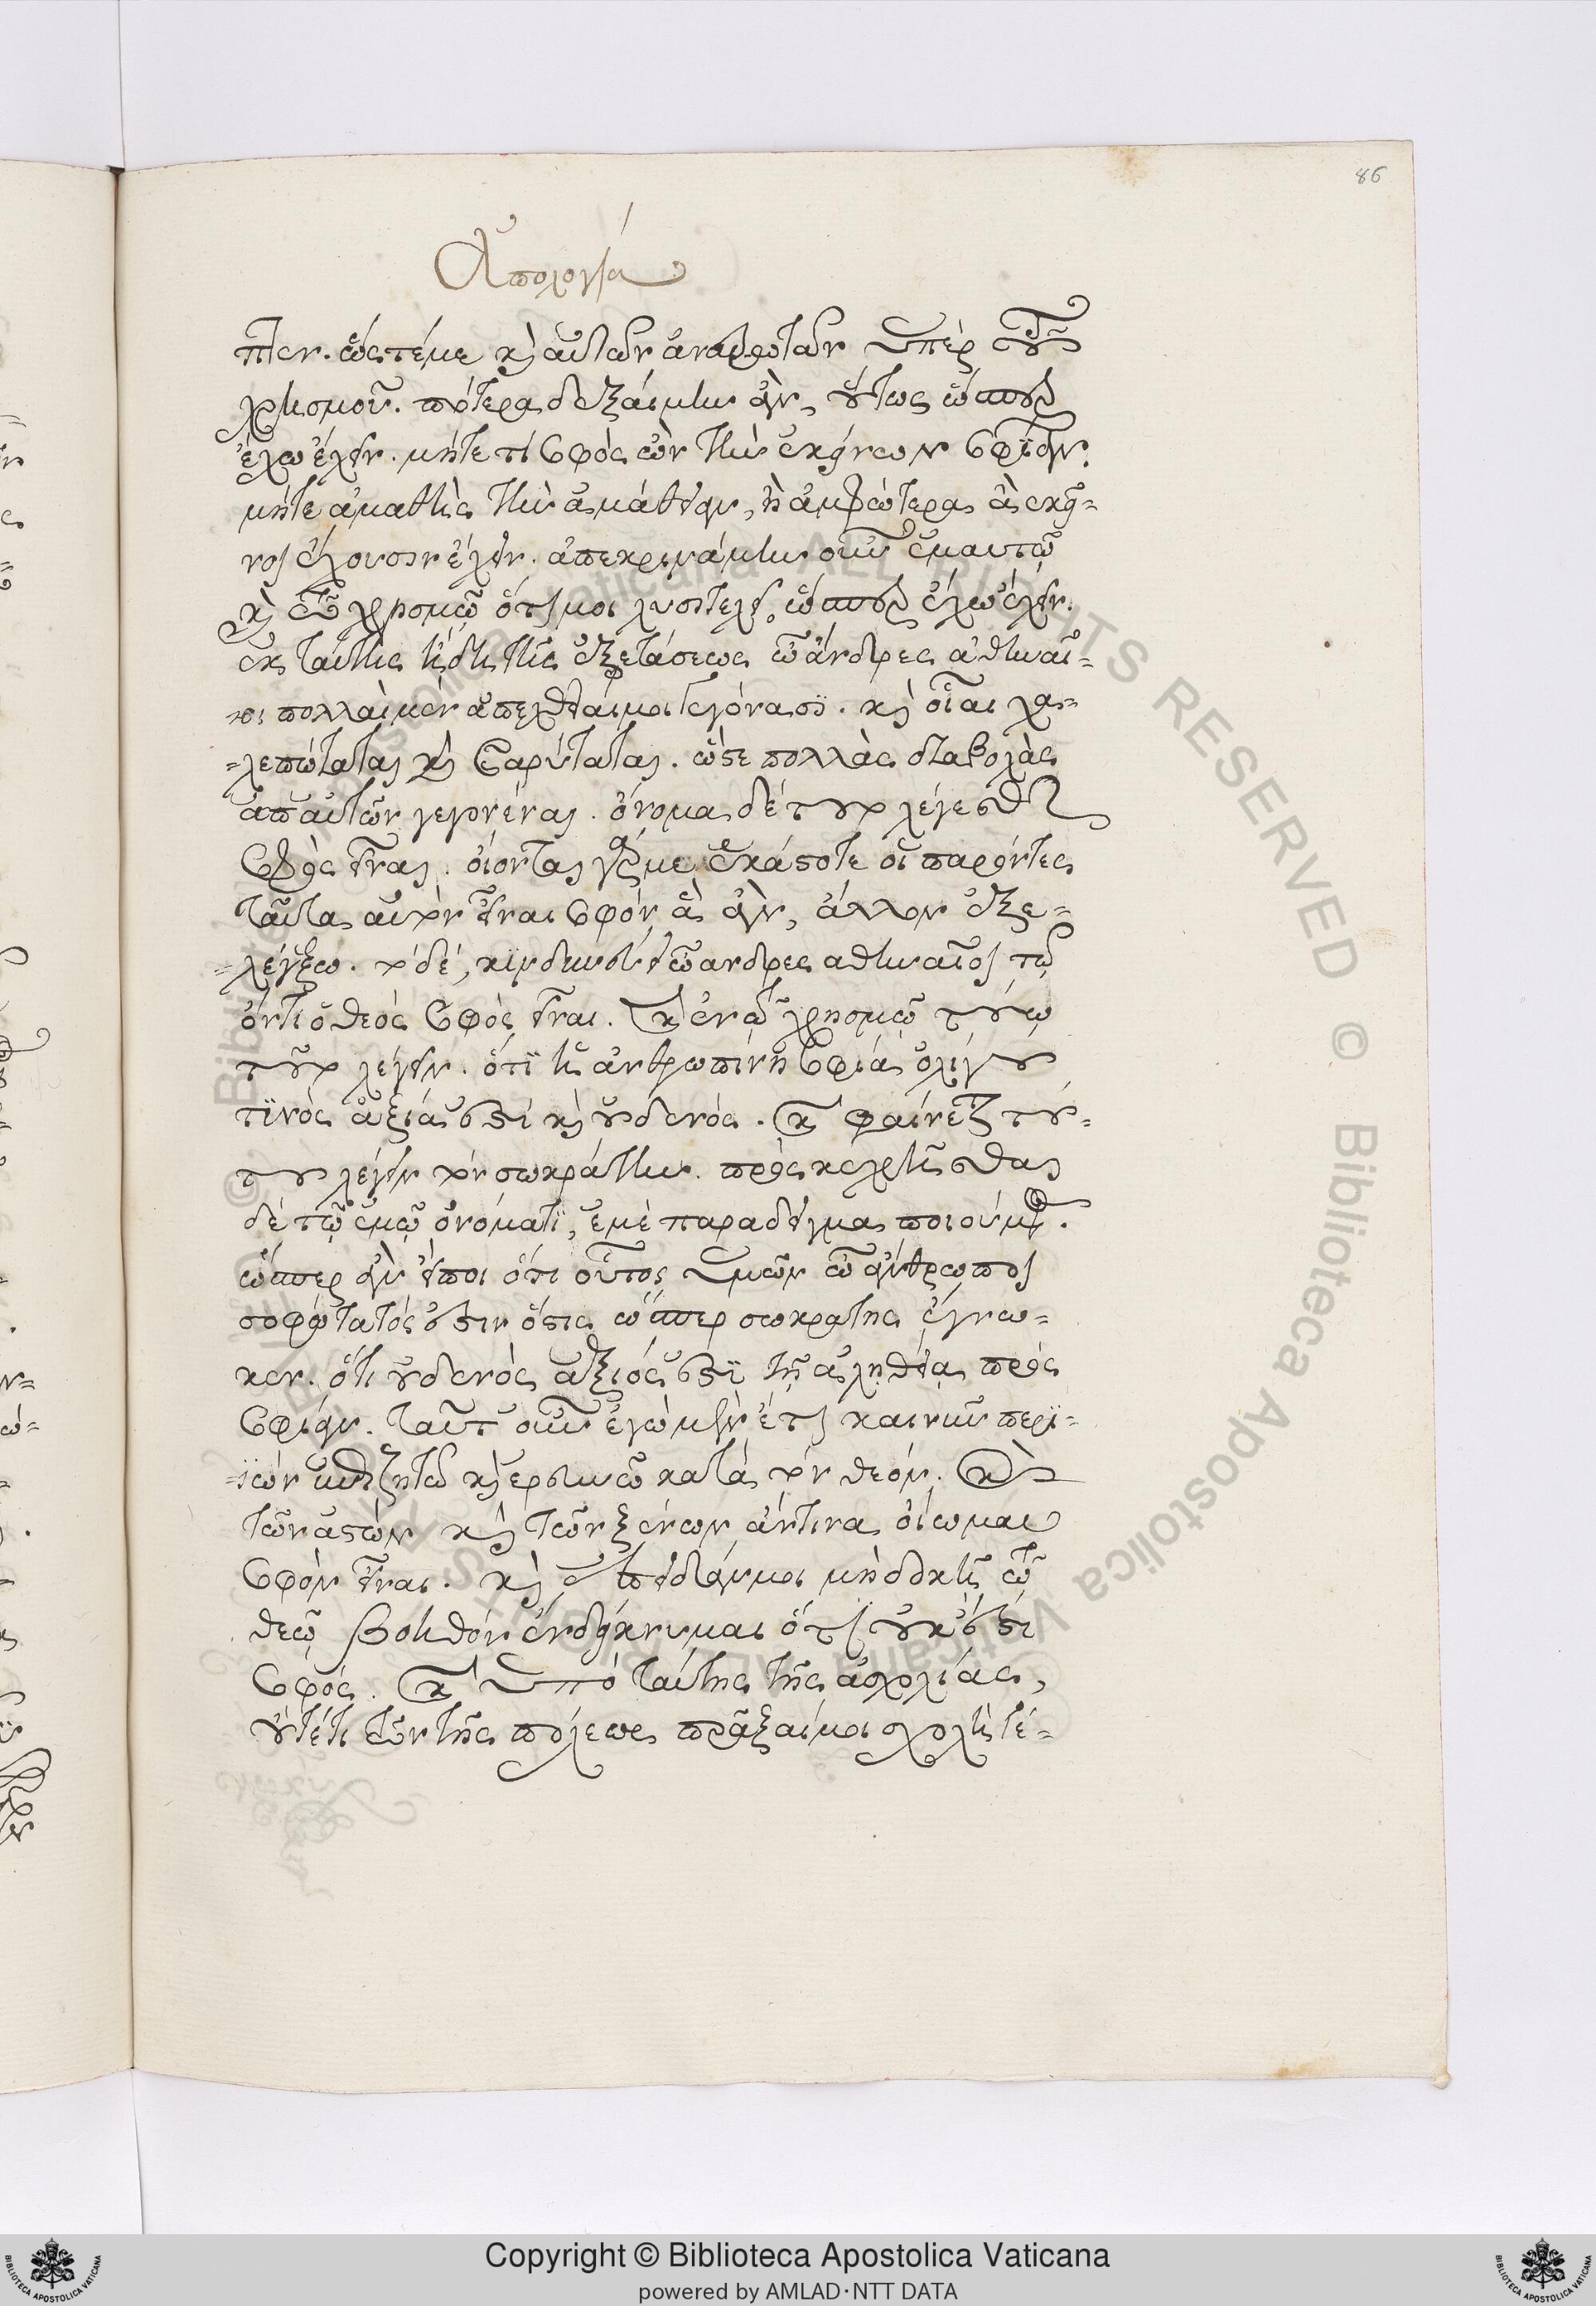 86
Ἀπολογία
πτεν. ὥστέμε καὶ αὐτὸν ἀνερωτᾶν ὑπὲρ τοῦ
χρησμοῦ. πότερα δεξαίμην ἂν, οὕτως ὥσπερ
ἔχω ἔχειν. μήτε τί σοφὸς ὢν τὴν ἐκείνων σοφίαν.
μήτε ἀμαθὴς τὴν ἀμάθειαν, ἢ ἀμφότερα ἃ ἐκεῖ=
νοι ἔχουσιν ἔχειν. ἀπεκρινάμην οὖν ἐμαυτῷ
καὶ τῷ χρησμῷ ὅτι μοι λυσιτελεῖ ὥσπερ ἔχω ἔχειν.
ἐκ ταύτης ἤδη τῆς ἐξετάσεως ὦ ἄνδρες ἀθηναῖ=
=οι πολλαὶ μὲν ἀπέχθειαί μοι γεγόνασϊ. καὶ οἷαι χα=
=λεπώταται καὶ βαρύταται. ὥστε πολλὰς διαβολὰς
ἀπ αὐτῶν γεγονέναι. ὄνομα δὲ τοῦτο λέγεσθαι
σοφὸς εἶναι. οἴονται γάρ με ἑκάστοτε οἱ παρόντες
ταῦτα αὐτὸν εἶναι σοφόν, ἃ ἂν, ἄλλον ἐξε=
=λέγξω. τὸ δέ, κϊνδυνεύει ὦ ανδρες αθηναῖοι τῷ
ὄντι ὁ θεὸς σοφὸς εἶναι. καὶ ἐν τῷ χρησμῷ τούτῳ
τοῦτο λέγειν. ὅτϊ ἡ ἀνθρωπίνη σοφία ὀλίγου
τϊνὸς ἀξία ἐστὶ καὶ οὐδενός. καὶ φαίνεται τοῦ=
του λέγειν τὸν σωκράτην. προσκεχρῆσθαι
δὲ τῷ ἐμῷ ὀνόματϊ, ἐμὲ παράδειγμα ποιούμενος.
ὥσπερ ἂν εἴποι ὅτι οὗτος ὑμῶν ὦ ἄνθρωποι
σοφώτατός ἐστιν ὅστις ὥσπερ σωκρατης ἔγνω=
κεν. ὅτι οὐδενὸς ἄξιός ἐστϊ τῇ ἀληθείᾳ πρὸς
σοφίαν. ταῦτ οὖν ἐγὼ μὲν ἔτι καινῦν περϊ=
=ϊὼν ζητῶ καὶ ερευνῶ κατὰ τὸν θεόν. καὶ
τῶν ἀστῶν καὶ τῶν ξένων ἄντινα οἴωμαι
σοφὸν εἶναι. καὶ ἐπειδάν μοι μὴ δοκῇ τῷ
θεῷ βοηθῶν ἐνδείκνυμαι ὅτι οὐκ ἔστι
σοφός. καὶ ὑπὸ ταύτης τῆς ἀσχολίας,
οὔτέτι τῶν τῆς πόλεως πρᾶξαί μοι σχολὴ τέ=